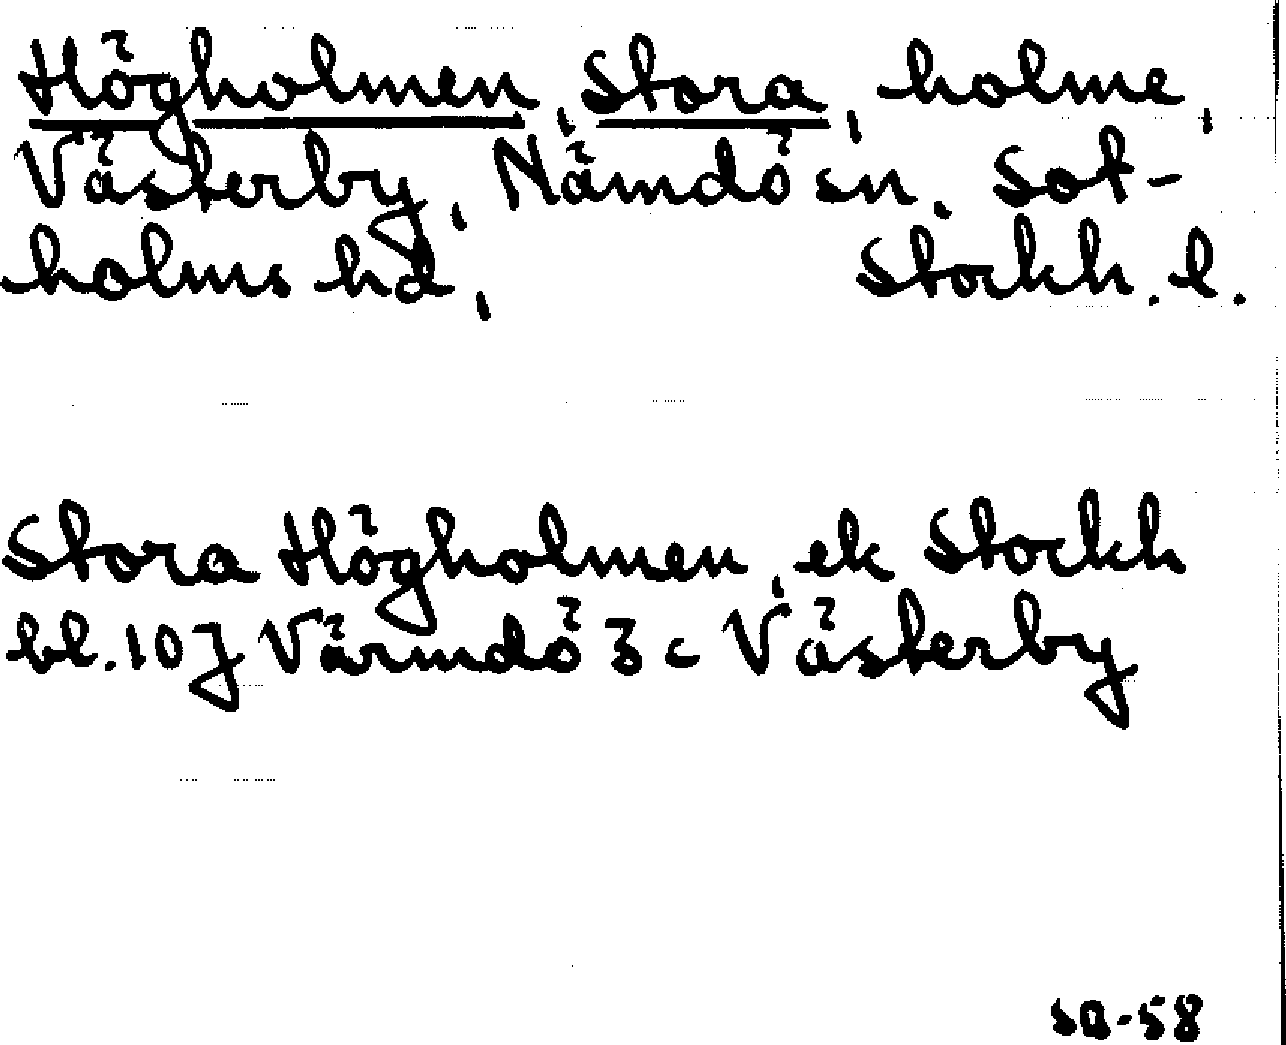 Högholmen, Stora, holme,
Västerby, Nämdö sn. Sot-
holms hd, Stockh. l.
Stora Högholmen, ek Stockh
bl. 10 J Värmdö 3 c Västerby
sa-58